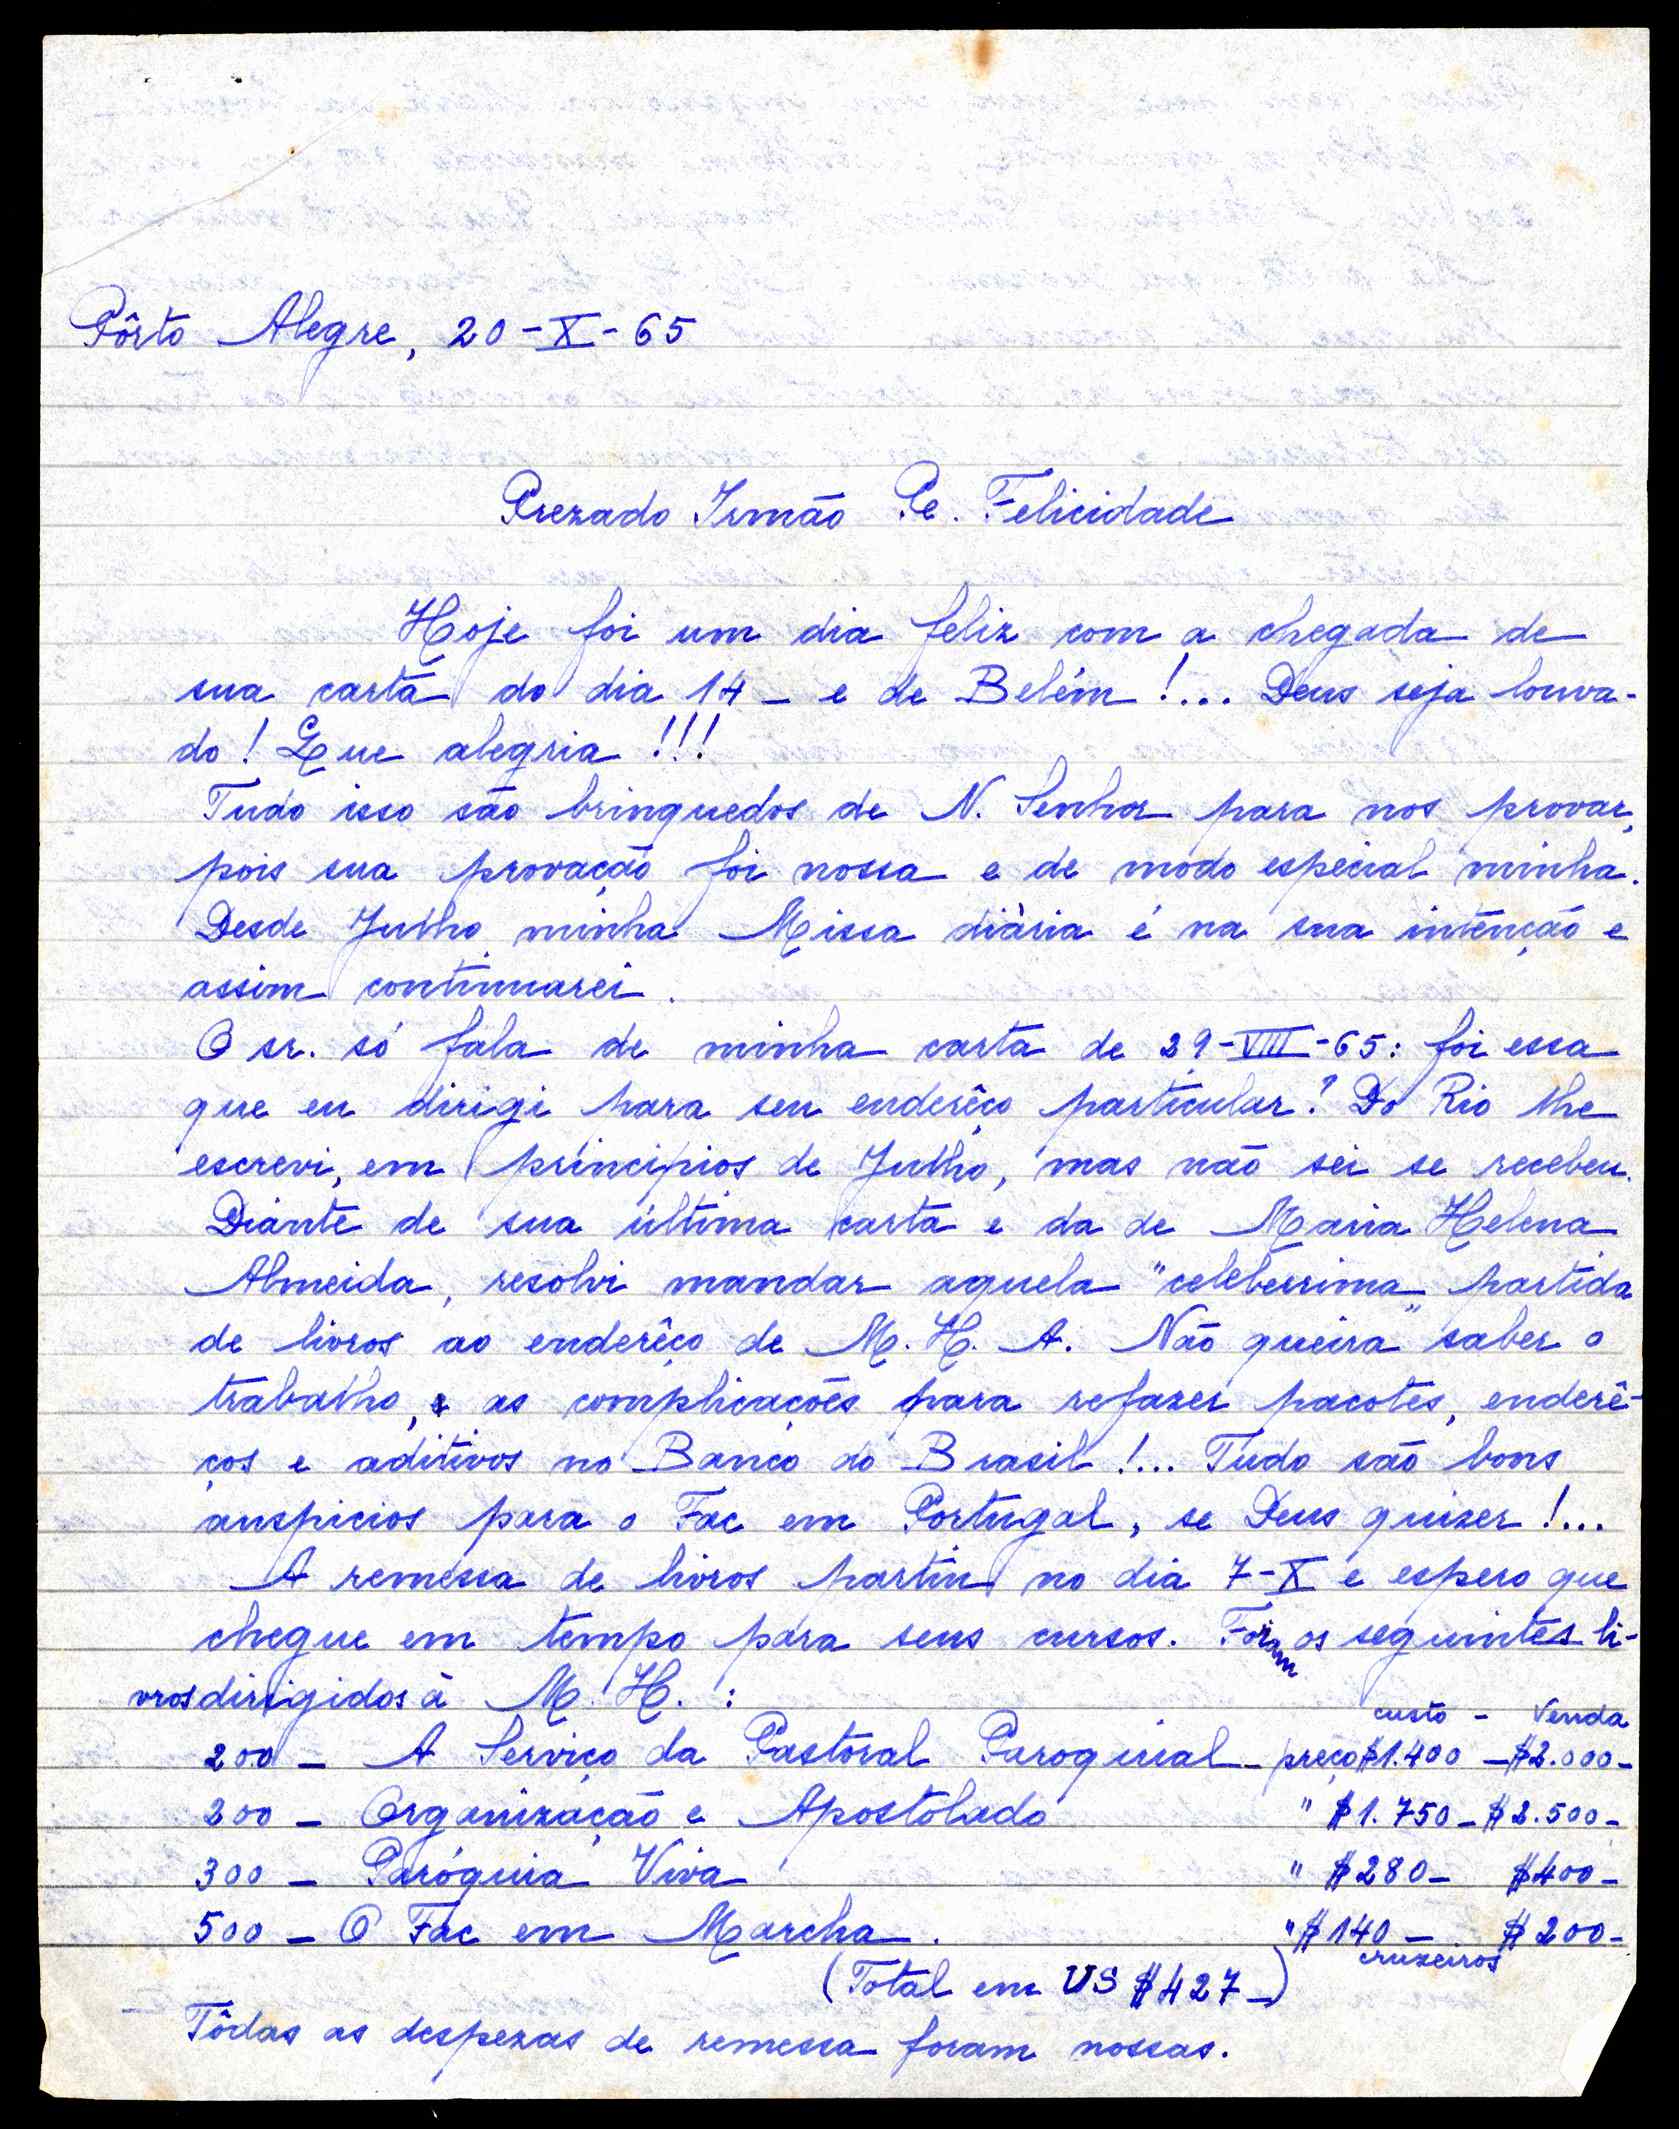 Pôrto Alegre, 20-X-65
Prezado Irmão Pe. Felicidade
Hoje foi um dia feliz com a chegada de
sua carta do dia 14 - e de Belém!... Deus seja louva-
do! Que alegria!!!
Tudo isso são brinquedos de N. Senhor para nos provar,
pois sua provação foi nossa e de modo especial minha.
Desde Julho minha Missa diària é na sua intenção e
assim continuarei.
O sr. só fala de minha carta de 29-VIII-65: foi essa
que eu dirigi para seu enderêço particular? Do Rio lhe
escrevi, em princípios de Julho, mas não sei se recebeu.
Diante de sua última carta e da de Maria Helena
Almeida, resolvi mandar aquela "celeberrima" partida
de livros ao enderêço de M. H. A. Não queira saber o
trabalho, e as complicações para refazer pacotes, enderê-
ços e aditivos no Banco do Brasil!... Tudo são bons
auspicios para o Fac em Portugal, se Deus quizer!...
A remessa de livros partiu no dia 7-X e espero que
chegue em tempo para seus cursos. Foram os seguintes li-
vros dirigidos à M. H. :
custo - Venda
200 - A Serviço da Pastoral Paroquial - preço $1.400 - $2.000-
200 - Organização e Apostolado " $1.750 - $2.500-
300 - Paróquia Viva " $280- $400-
500 - O Fac em Marcha. " $140 - $200-
cruzeiros
(Total em US $427-)
Tôdas as despezas de remessa foram nossas.